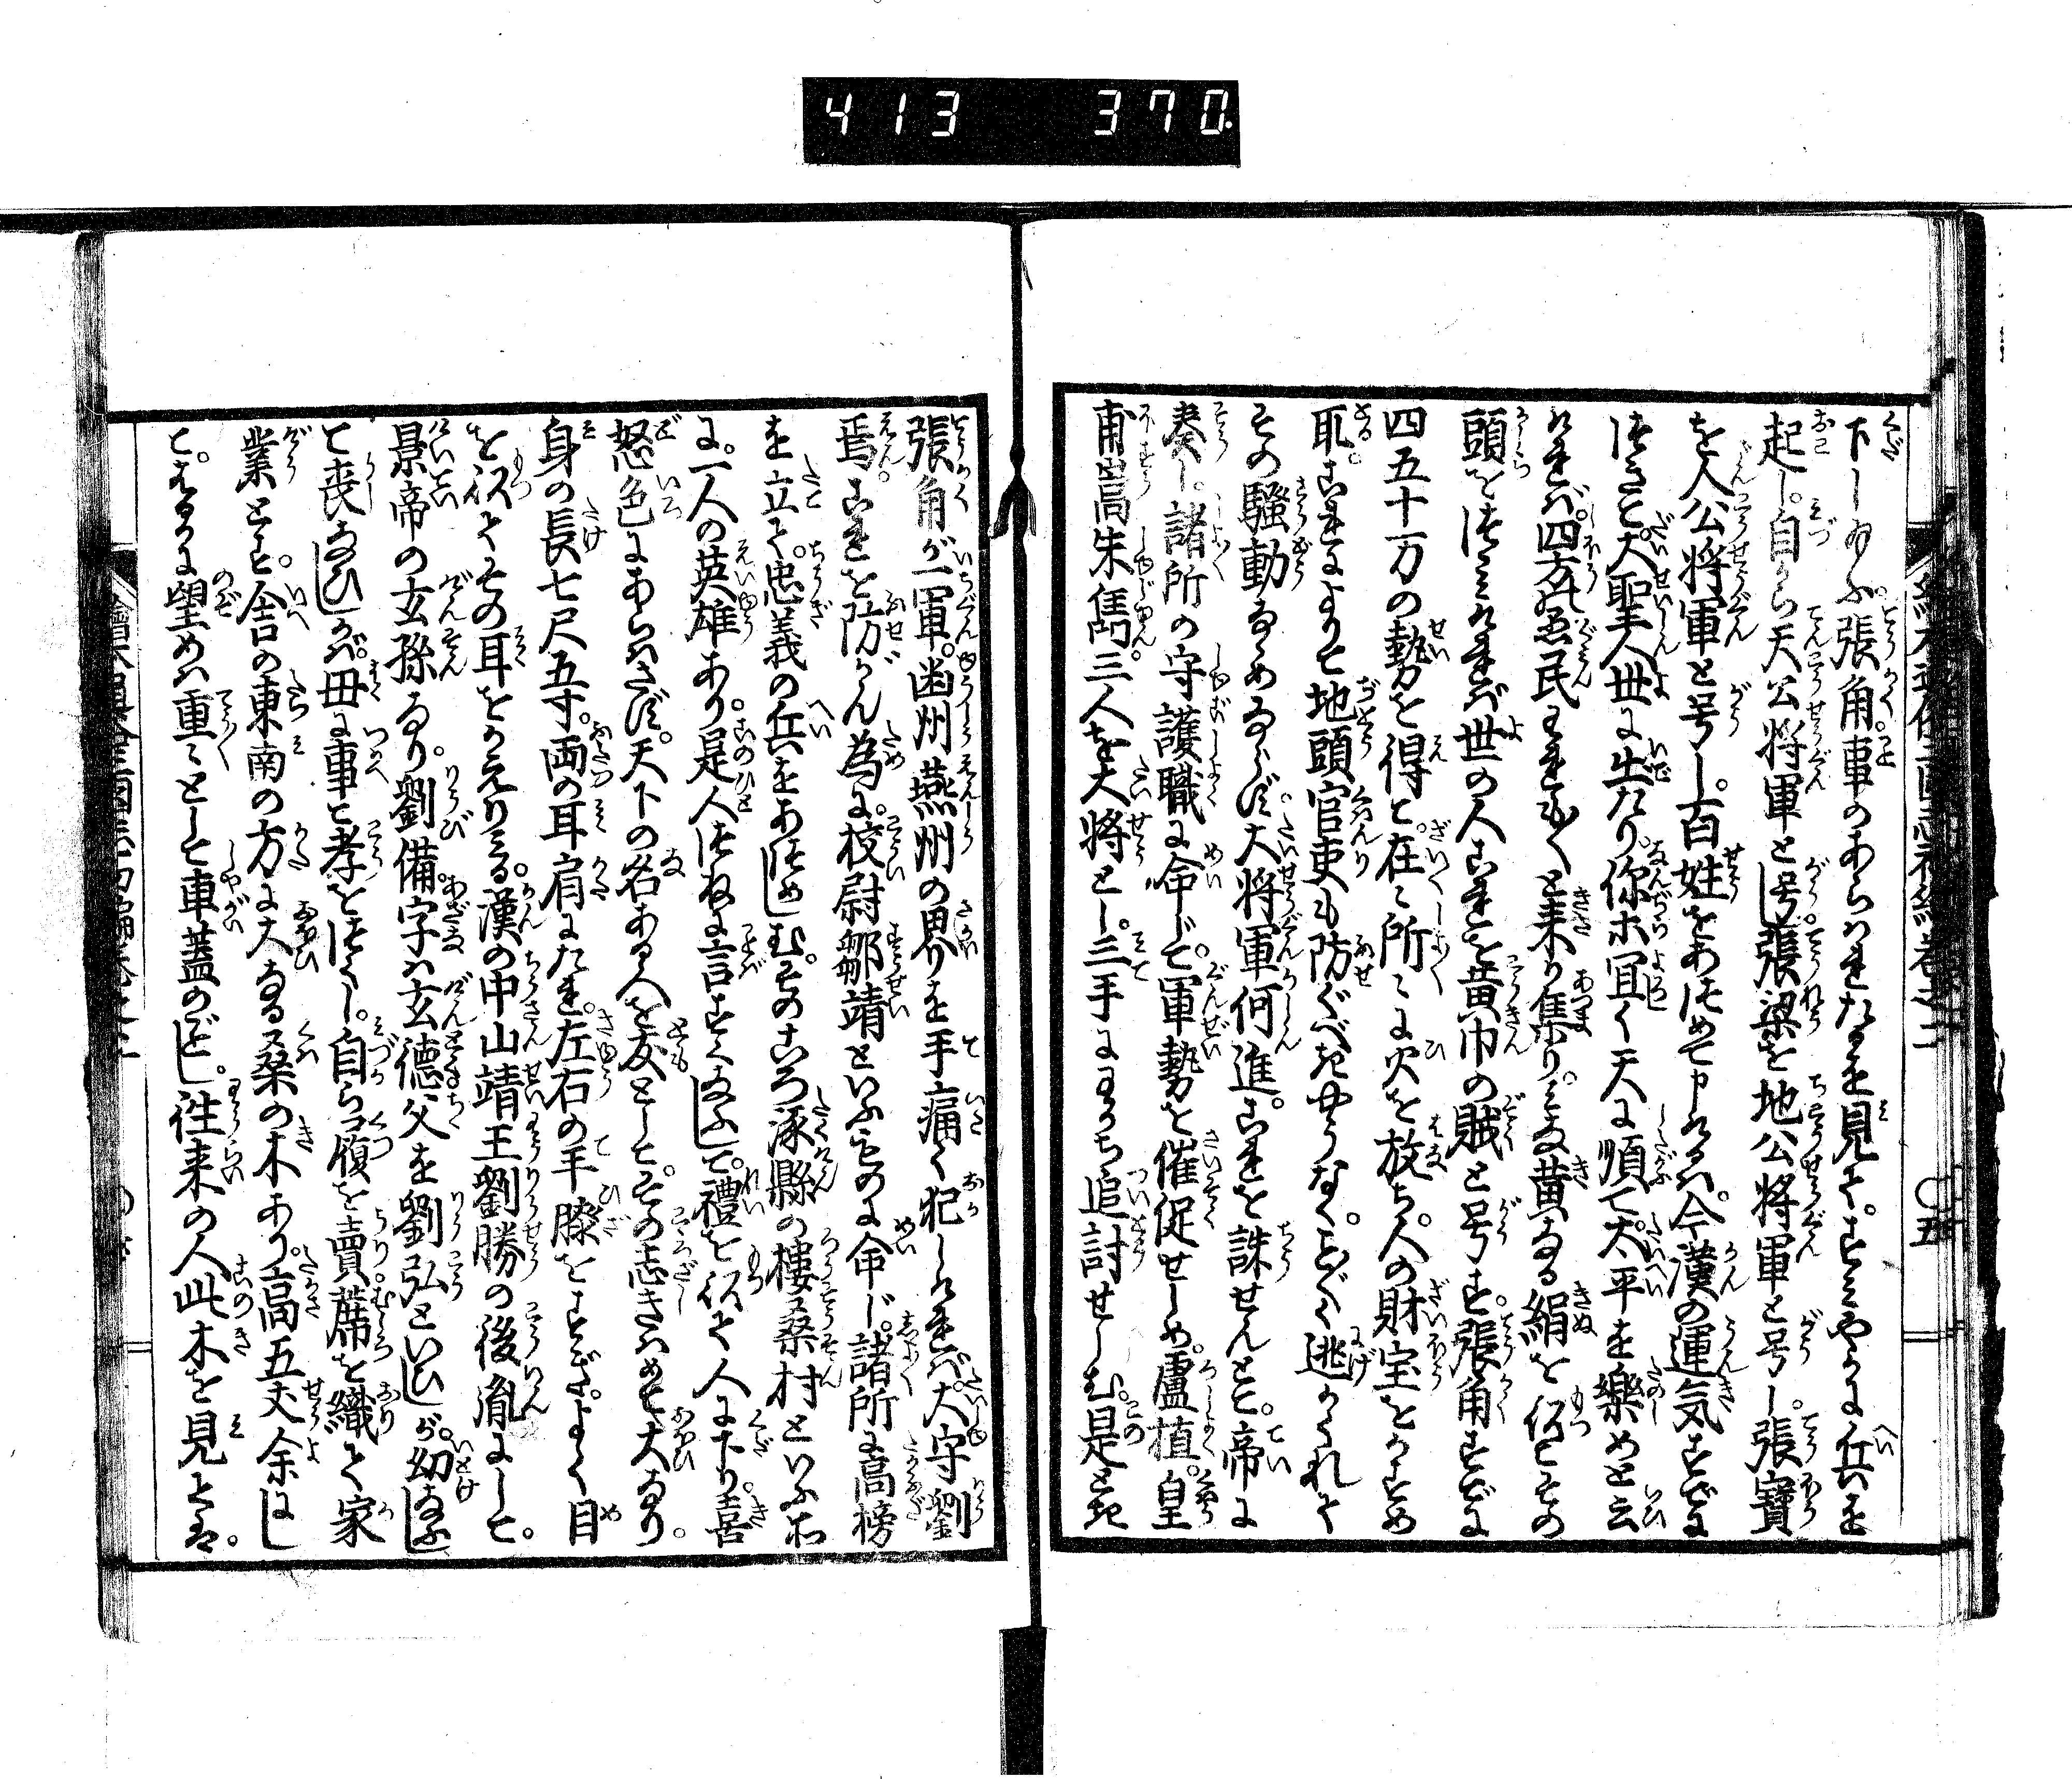 413 370.
下し給ふ。張角事のあらはれたるを見て。すみやかに兵を
起し。自ら天公将軍と号。張梁を地公将軍と号し。張寶
を人公将軍と号し。百姓をあつめて申けるは。今漢の運気すでに
つきて。大聖人世に生たり。你ホ宜く天に順て太平を楽めと云
ければ。四方の愚民われもわれもと来り集り。みな黄なる絹を以てその
頭をつゝみければ世の人これを黄巾の賊と号す。張角すでに
四五十万の勢を得て。在々所々に火を放ち。人の財宝をかすめ
取。これによりて地頭官吏も防ぐべきやうなく。ことごとく逃かくれて
その騒動なゝめならず。大将軍何進。これを誅せんとて。帝に
奏し。諸所の守護職に命じて。軍勢を催促せしめ。盧植。皇
甫嵩朱雋。三人を大将とし。三手にわかち追討せしむ。是とき
張角が一軍。幽州燕州の界を手痛く犯しければ。大守劉
焉。これを防がん為に。校尉鄒靖といふものに命じ。諸所に高榜
を立て。忠義の兵をあつめしむ。そのころ涿縣の楼桑村といふ所
に。一人の英雄あり。是人つねに言すくなふして。禮を以て人に下り。喜
怒色にあらはさず。天下の名ある人を友として。その志きはめて大なり。
身の長七尺五寸。両の耳肩にたれ。左右の手膝をすぎ。よく目
を以てその耳をかえりみる。漢の中山靖王劉勝の後胤にして。
景帝の玄孫なり。劉備。字は玄徳父を劉弘といひしが。幼なふし
て喪なひしかば。母に事て孝をつくし。自ら履を賣。蓆を織て家
業とす。舎の東南の方に大なる桑の木あり。高五丈余にし
て。はるかに望めは重々として車蓋のごとし。往来の人此木を見とは。